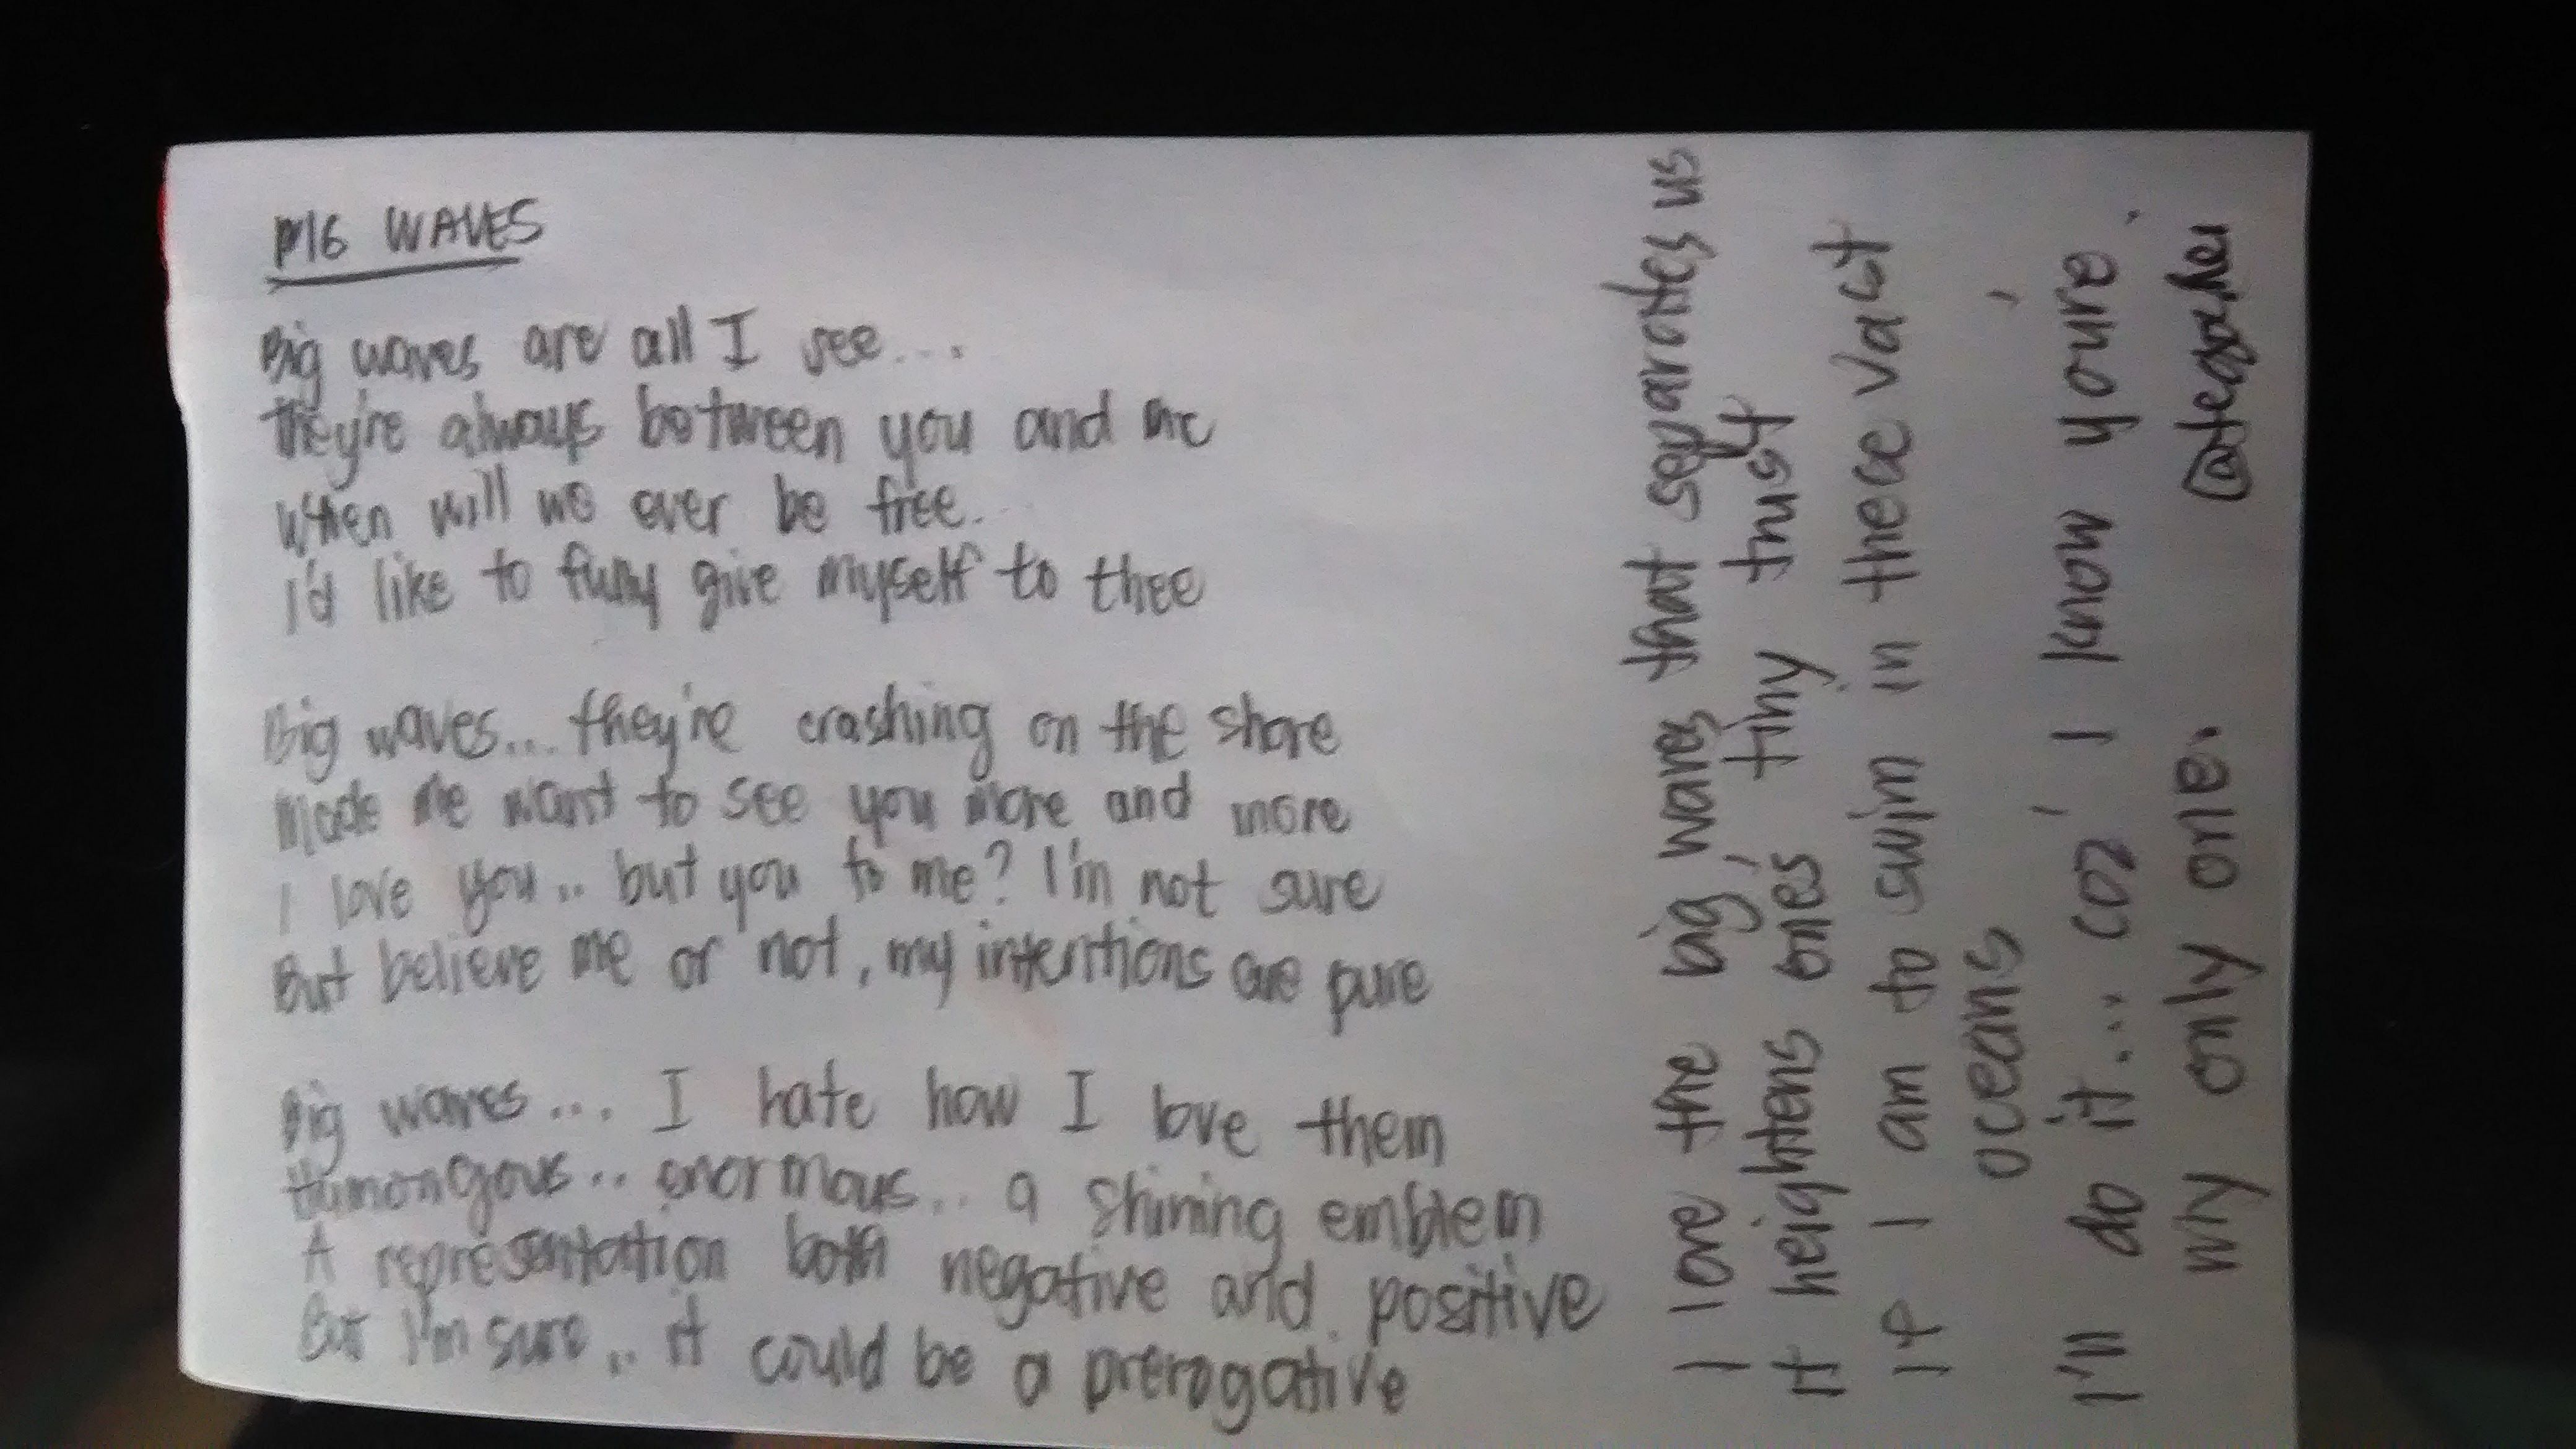 BIG WAVES
Big waves are all I see...
they're always between you and me
When will we ever be free..
I'd like to fully give myself to thee
Big waves... they're crashing on the shore
Made me want to see you more and more
I love you.. but you to me? I'm not sure
But believe me or not, my intentions are pure
Big waves... I hate how I love them
Humongous.. enormous.. a shining emblem
A representation both negative and positive
But I'm sure.. it could be a prerogative
I love the big waves that separates us
It heightens ones' tiny trust
If I am to swim in these vast
oceans
I'll do it... coz' I know you're
my only one.